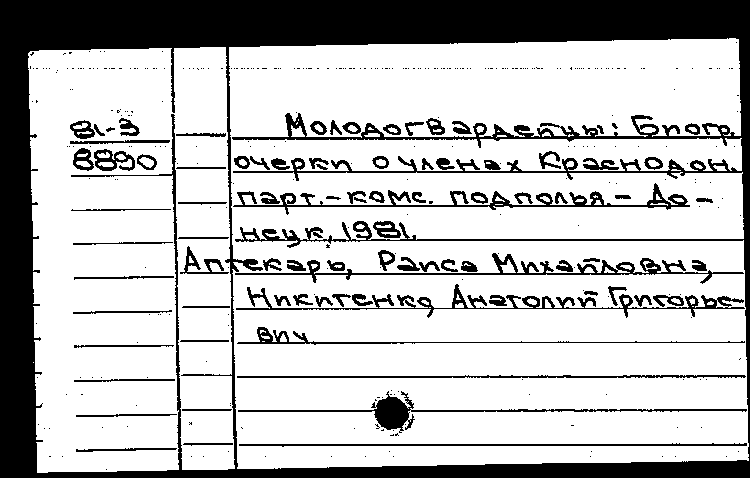 81-3
8890
Молодогвардейцы: Биогр.
очерки о членах Краснодон.
парт.-комс. подполья.- До-
нецк, 1981.
Аптекарь, Раиса Михайловна,
Никитенко, Анатолий Григорье-
вич.